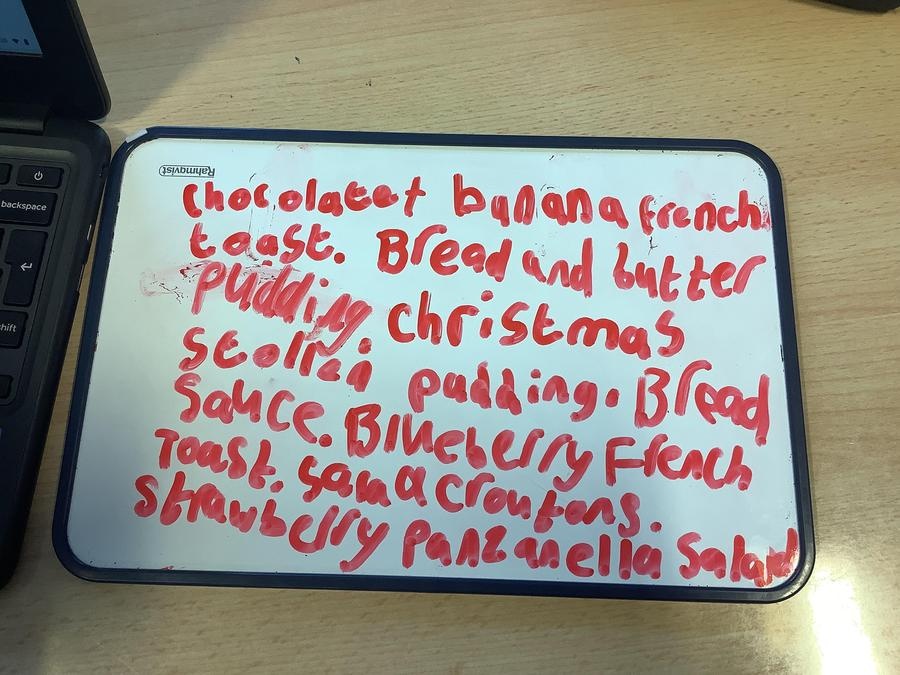 Rahmqvist
chocolatet banana french
toast. Bread and butter
pudding christmas
pudding. Bread
Sauce. Blueberry French
Toast. croutons.
Strawberry panzanella Salad
backspace
shift